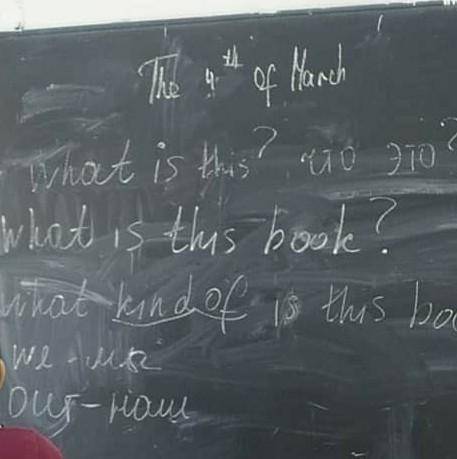 The 4th of March
What is this? что это?
What is this book?
what kind of is this boo
we - мы
our - наш